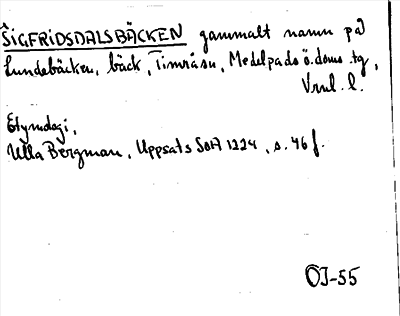 SIGFRIDSDALSBÄCKEN gammalt namn på
Lundebäcken, bäck, Timrå sn, Medelpads ö. doms. tg,
Vrnl. l.
Etymologi,
Ulla Bergman, Uppsats SOA 1224, s. 46 f.
ÖJ-55